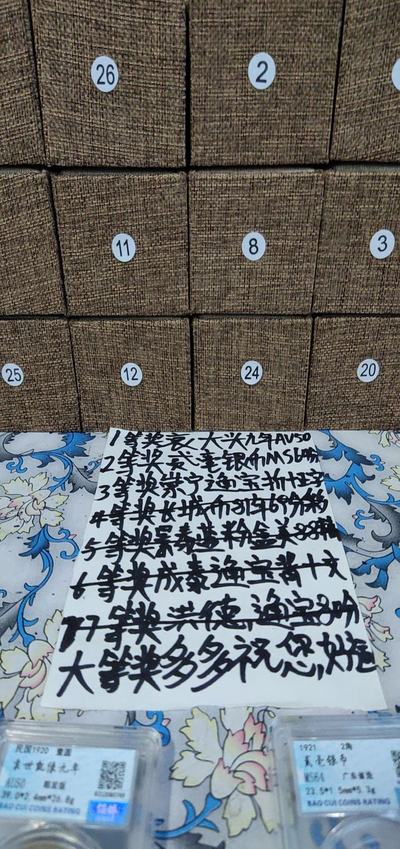 26
2
11
8
3
25
12
24
20
1等奖袁大头九年AU50
2等奖贰毫银币MS64分
3等奖崇宁通宝折十
4等奖长城币81年69分
5等奖景泰蓝粉盒美88
6等奖咸泰通宝背十文
7等奖洪德通宝80分
大等奖多多祝您好运
民国1920 壹圆
袁世凯像九年
AU50 精发版
39.0*2.4mm*26.8g
BAO CUI COINS RATING
1921 2角
贰毫银币
MS64 广东省造
23.5*1.5mm*5.3g
BAO CUI COINS RATING